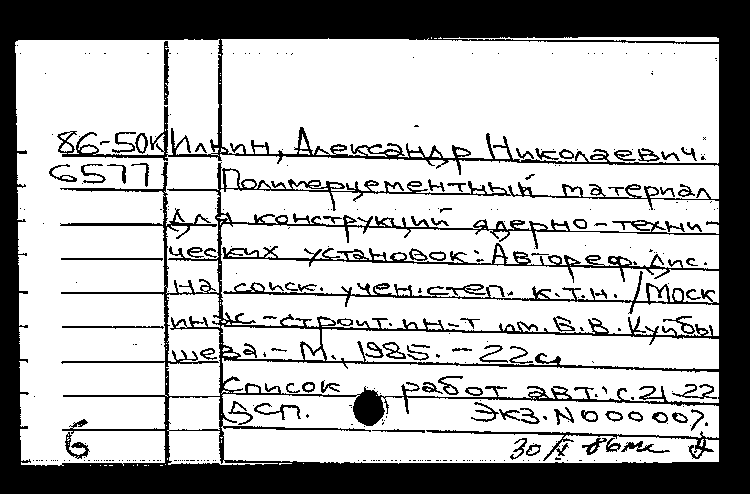 86-50к Ильин, Александр Николаевич.
6577 Полимерцементный материал
для конструкций ядерно-техни-
ческих установок: Автореф. дис.
на соиск. учен. степ. к.т.н. / Моск
инж.-строит. ин-т им. В.В. Куйбы
шева. - М., 1985. - 22с
Список работ авт.: с. 21-22
ДСП. Экз. N000007.
6 30/I 86